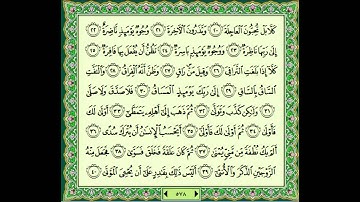 كَلَّا بَلْ تُحِبُّونَ ٱلْعَاجِلَةَ ٢٠ وَتَذَرُونَ ٱلْأَخِرَةَ ٢١ وُجُوهٌ يَوْمَئِذٍ نَّاضِرَةٌ ٢٢
إِلَىٰ رَبِّهَا نَاظِرَةٌ ٢٣ وَوُجُوهٌ يَوْمَئِذٍۭ بَاسِرَةٌ ٢٤ تَظُنُّ أَن يُفْعَلَ بِهَا فَاقِرَةٌ ٢٥
كَلَّآ إِذَا بَلَغَتِ ٱلتَّرَاقِىَ ٢٦ وَقِيلَ مَنْ رَاقٍ ٢٧ وَظَنَّ أَنَّهُ ٱلْفِرَاقُ ٢٨ وَٱلْتَفَّتِ
ٱلسَّاقُ بِٱلسَّاقِ ٢٩ إِلَىٰ رَبِّكَ يَوْمَئِذٍ ٱلْمَسَاقُ ٣٠ فَلَا صَدَّقَ وَلَا صَلَّىٰ
٣١ وَلَٰكِن كَذَّبَ وَتَوَلَّىٰ ٣٢ ثُمَّ ذَهَبَ إِلَىٰٓ أَهْلِهِۦ يَتَمَطَّىٰٓ ٣٣ أَوْلَىٰ لَكَ
فَأَوْلَىٰ ٣٤ ثُمَّ أَوْلَىٰ لَكَ فَأَوْلَىٰٓ ٣٥ أَيَحْسَبُ ٱلْإِنسَٰنُ أَن يُتْرَكَ سُدًى ٣٦
أَلَمْ يَكُ نُطْفَةً مِّن مَّنِىٍّ يُمْنَىٰ ٣٧ ثُمَّ كَانَ عَلَقَةً فَخَلَقَ فَسَوَّىٰ ٣٨ فَجَعَلَ مِنْهُ
ٱلزَّوْجَيْنِ ٱلذَّكَرَ وَٱلْأُنثَىٰٓ ٣٩ أَلَيْسَ ذَٰلِكَ بِقَٰدِرٍ عَلَىٰٓ أَن يُحْۦِىَ ٱلْمَوْتَىٰ ٤٠
٥٧٨